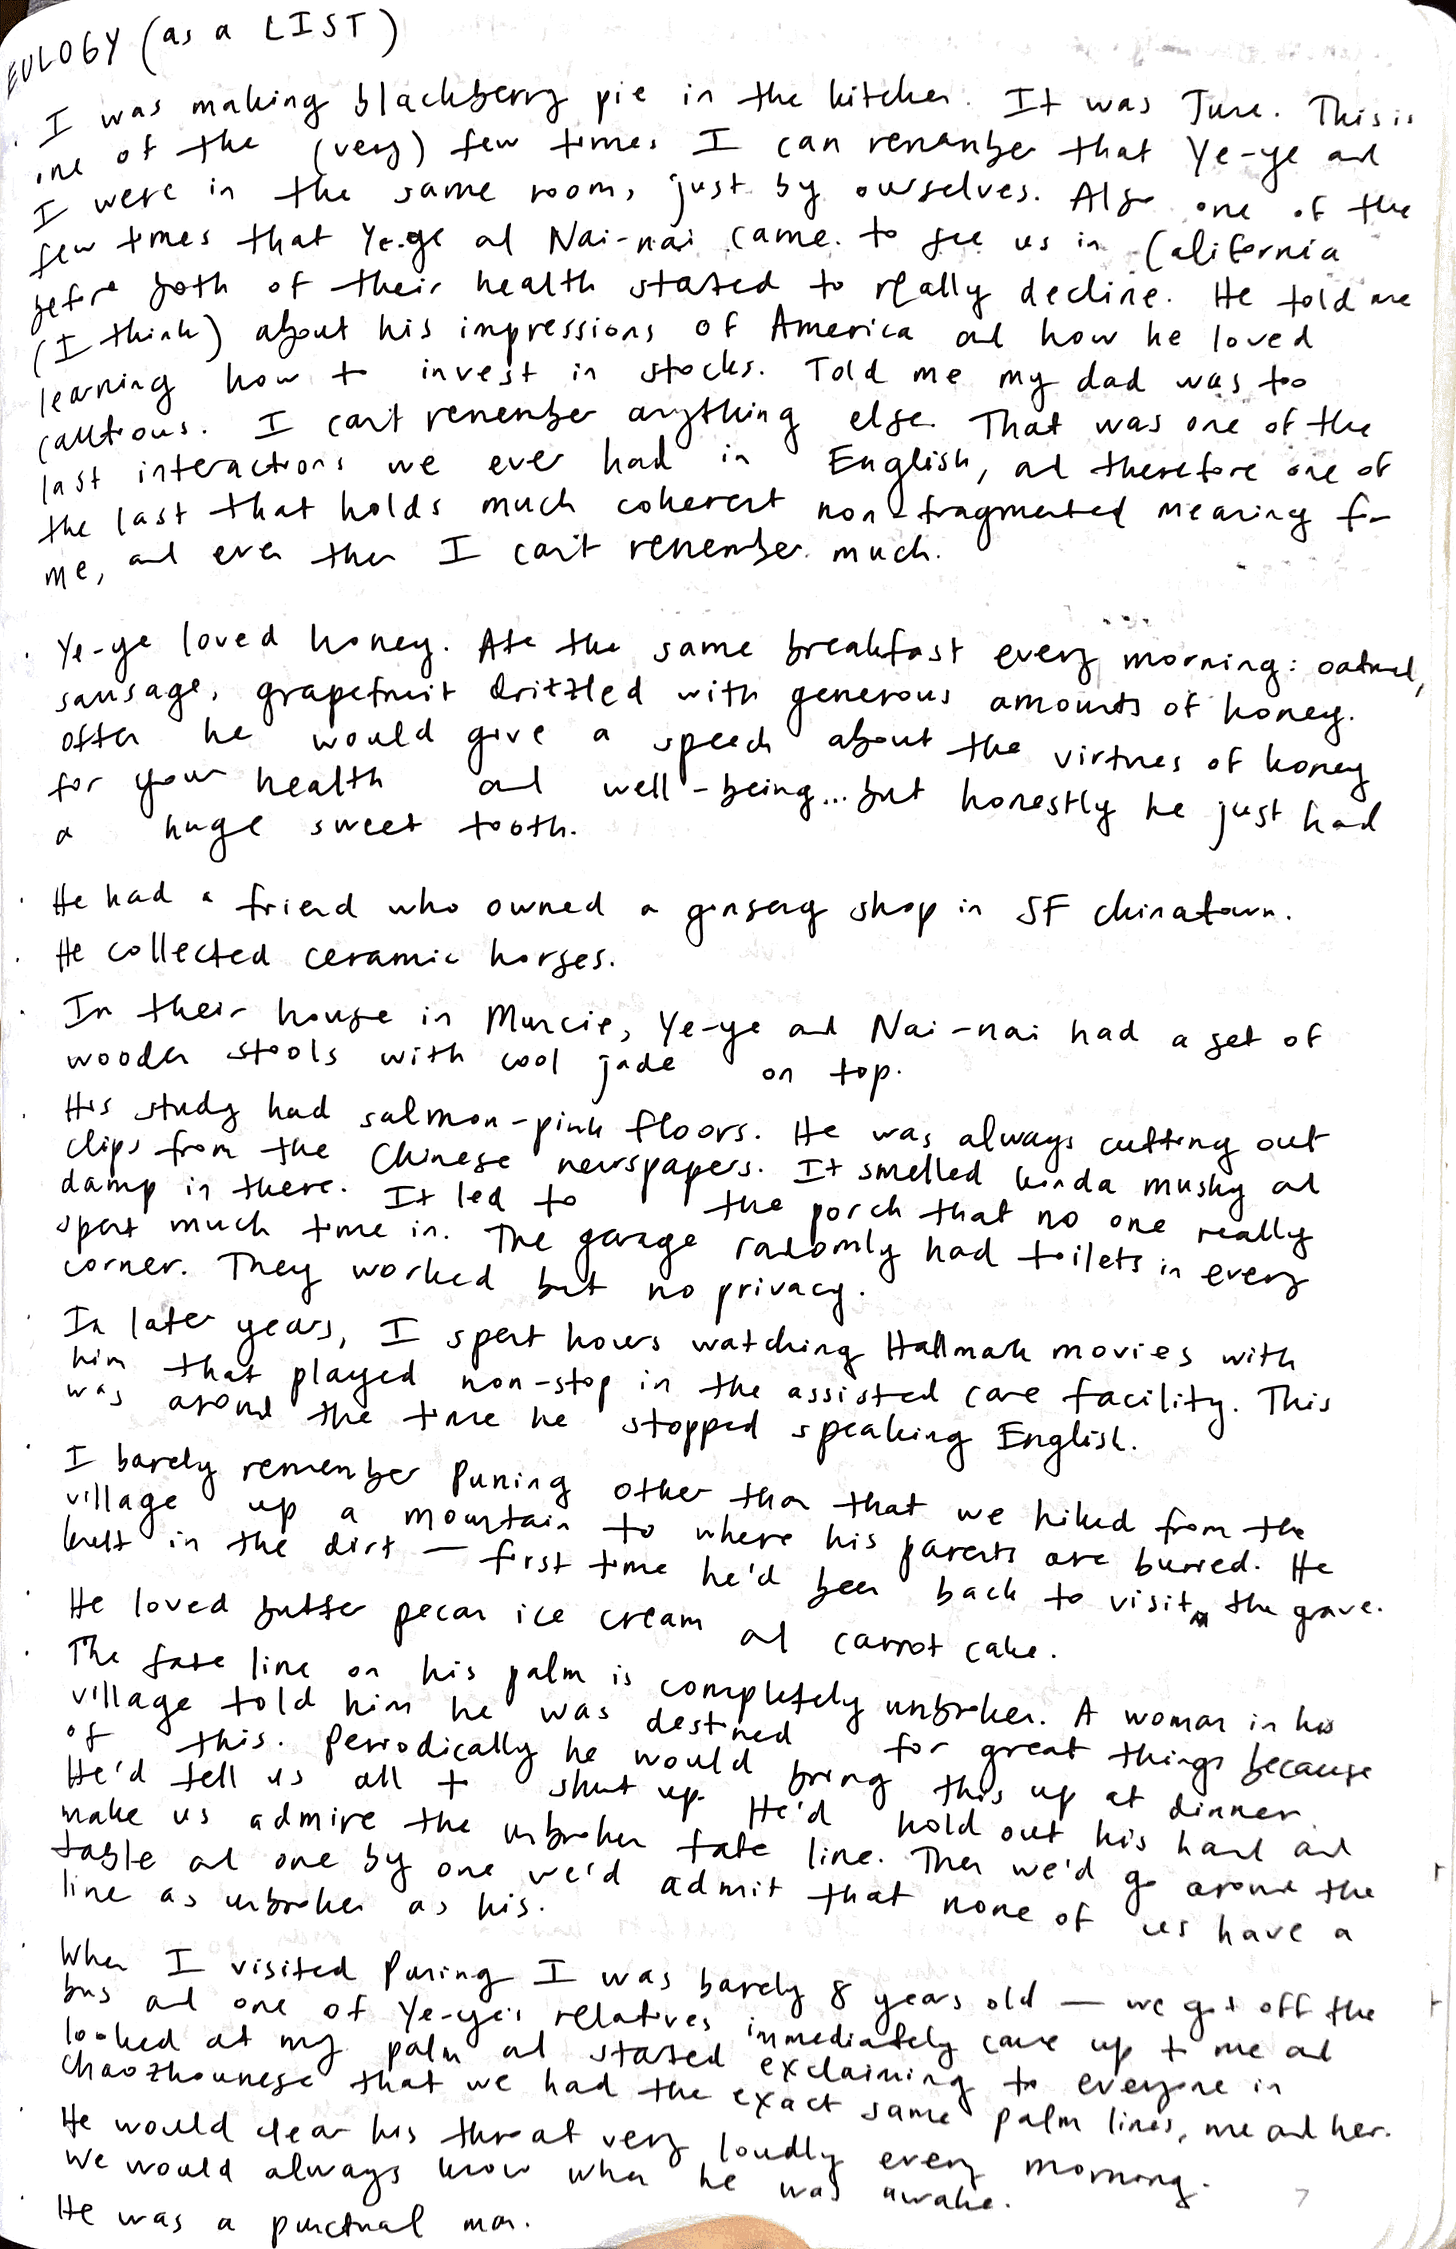 EULOGY (as a LIST)
· I was making blackberry pie in the kitchen. It was June. This is
one of the (very) few times I can remember that Ye-ye and
I were in the same room, just by ourselves. Also one of the
few times that Ye-ye and Nai-nai came to see us in California
before both of their health started to really decline. He told me
(I think) about his impressions of America and how he loved
learning how to invest in stocks. Told me my dad was too
cautious. I can't remember anything else. That was one of the
last interactions we ever had in English, and therefore one of
the last that holds much coherent non-fragmented meaning for
me, and even then I can't remember much.
· Ye-ye loved honey. Ate the same breakfast every morning: oatmeal,
sausage, grapefruit drizzled with generous amounts of honey.
Often he would give a speech about the virtues of honey
for your health and well-being... but honestly he just had
a huge sweet tooth.
· He had a friend who owned a ginseng shop in SF chinatown.
· He collected ceramic horses.
· In their house in Muncie, Ye-ye and Nai-nai had a set of
wooden stools with cool jade on top.
· His study had salmon-pink floors. He was always cutting out
clips from the Chinese newspapers. It smelled kinda musky and
damp in there. It led to the porch that no one really
spent much time in. The garage randomly had toilets in every
corner. They worked but no privacy.
· In later years, I spent hours watching Hallmark movies with
him that played non-stop in the assisted care facility. This
was around the time he stopped speaking English.
· I barely remember Puning other than that we hiked from the
village up a mountain to where his parents are buried. He
knelt in the dirt — first time he'd been back to visit the grave.
· He loved butter pecan ice cream and carrot cake.
· The fate line on his palm is completely unbroken. A woman in his
village told him he was destined for great things because
of this. Periodically he would bring this up at dinner.
He'd tell us all to shut up. He'd hold out his hand and
make us admire the unbroken fate line. Then we'd go around the
table and one by one we'd admit that none of us have a
line as unbroken as his.
· When I visited Puning I was barely 8 years old — we got off the
bus and one of Ye-ye's relatives immediately came up to me and
looked at my palm and started exclaiming to everyone in
Chaozhounese that we had the exact same palm lines, me and her.
· He would clear his throat very loudly every morning.
We would always know when he was awake.
· He was a punctual man.
7